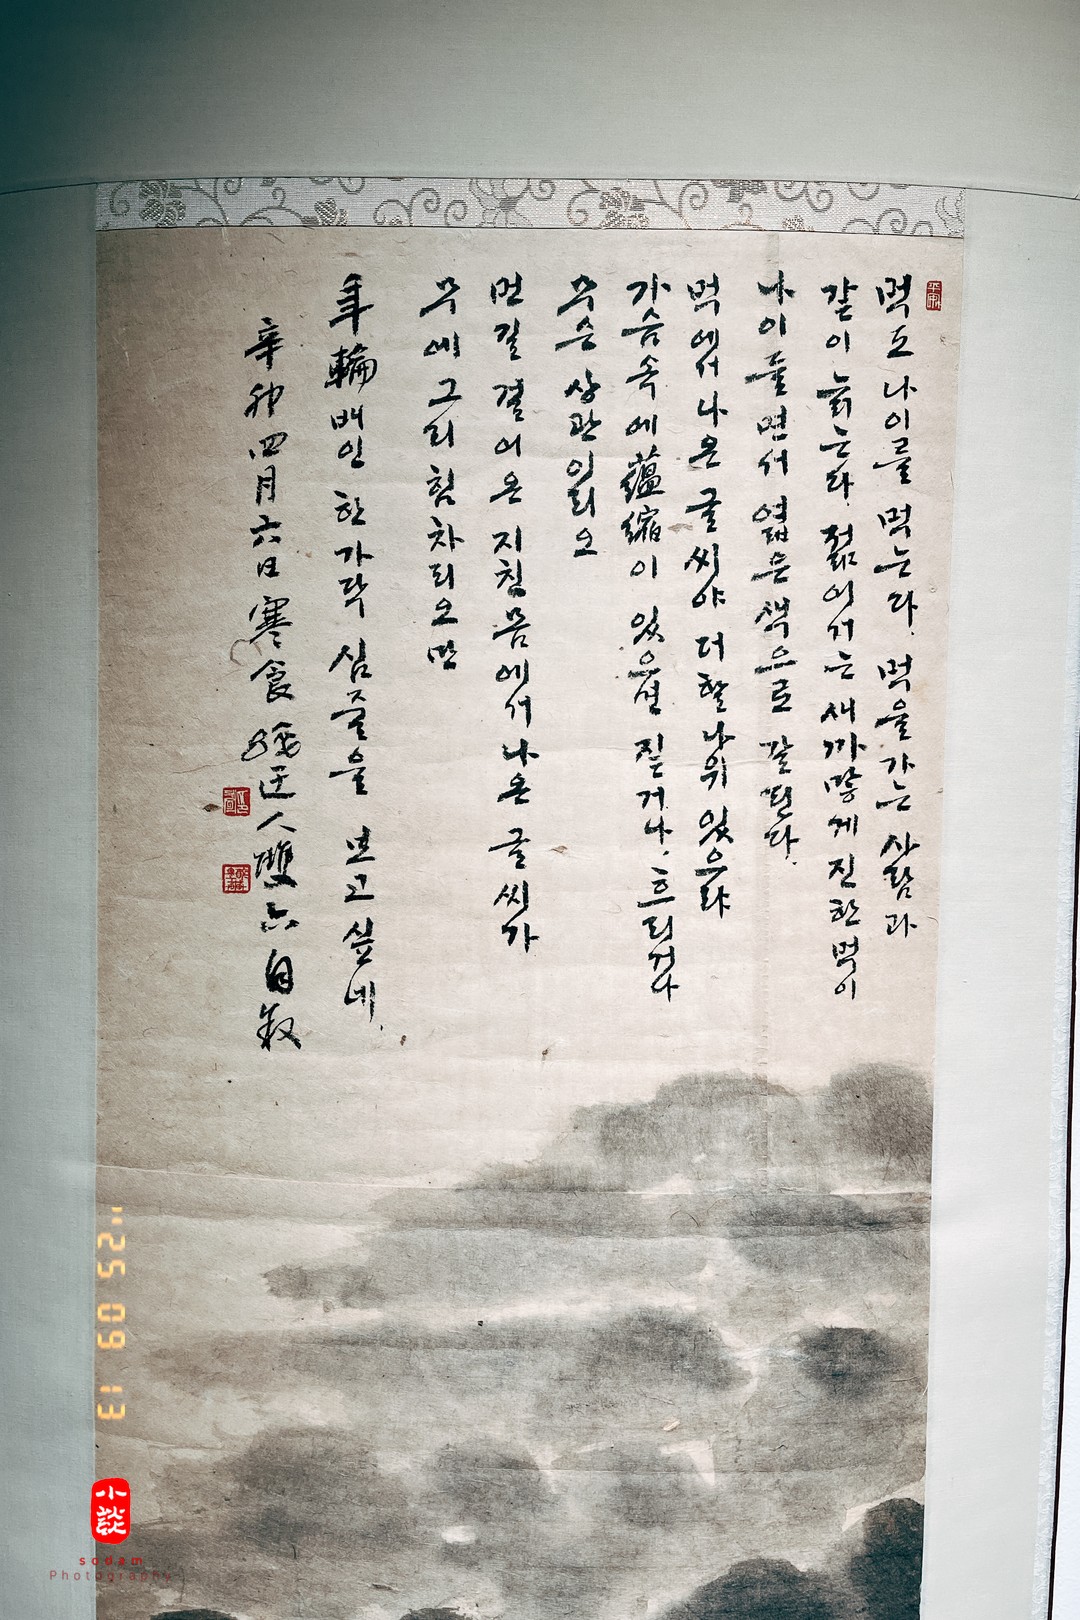 먹도 나이를 먹는다. 먹을 가는 사람과
같이 늙는다. 젊어서는 새까맣게 진한 먹이
나이 들면서 엷은 색으로 갈린다.
먹에서 나온 글씨야 더할 나위 있으랴
가슴속에 蘊縮이 있으면 짙거나. 흐리거나
무슨 상관 이리오
먼길 걸어온 지침 몸에서 나온 글씨가
무에 그리 힘차리오 만
年輪 배인 한가닥 심줄을 보고 싶네.
辛卯 四月 六日 寒食 迂人 雙六 自叙
小談
sodam
Photography
'25 09 13